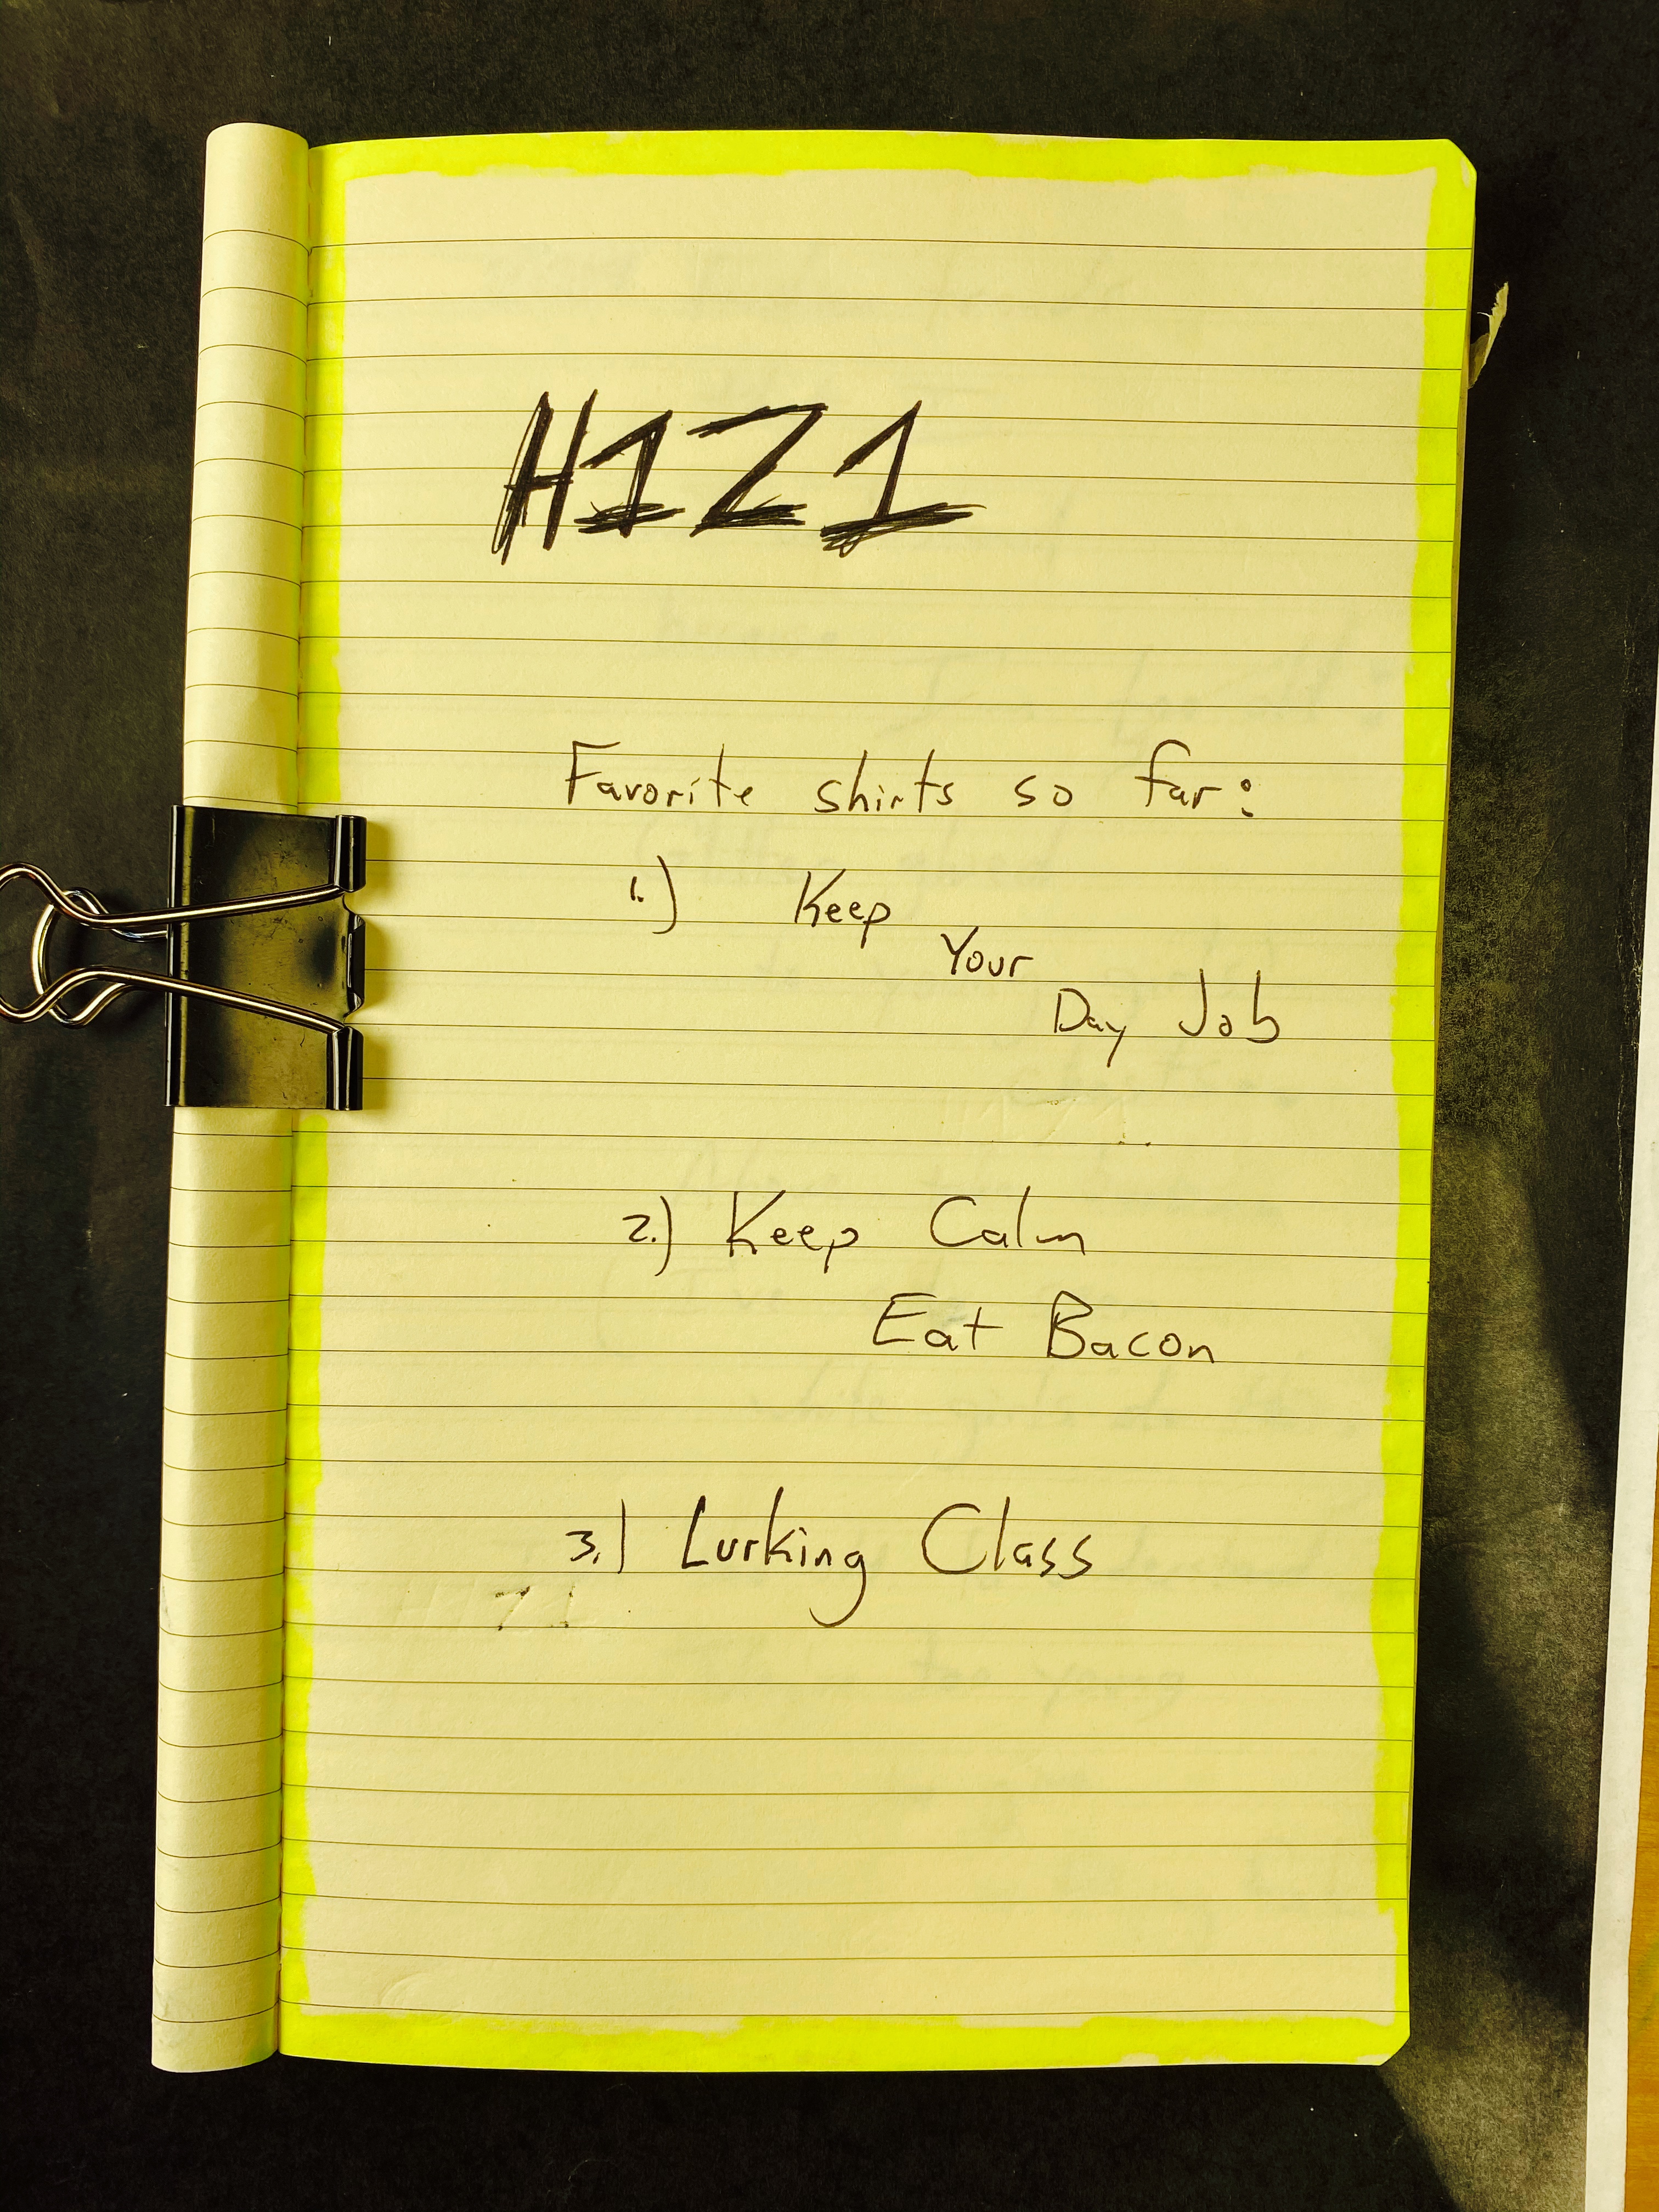 H1Z1
Favorite shirts so far:
1.) Keep
Your
Day Job
2.) Keep Calm
Eat Bacon
3.) Lurking Class